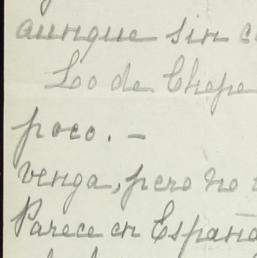 aunque sin
Lo de Chepe
poco. —
venga, pero no
Parece en España